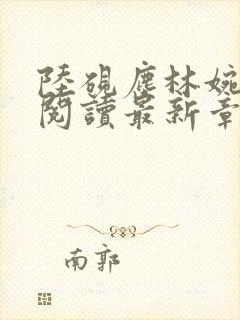 陸硯塵林婉
閱讀最新章
南郭